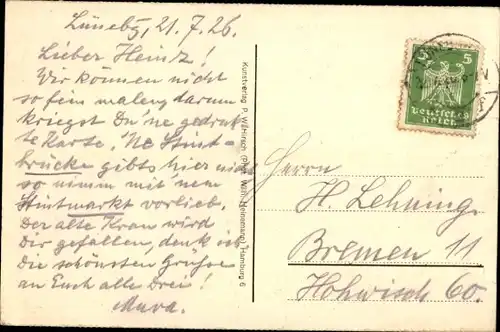 Lünebg, 21.7.26.
Lieber Heinz!
Wir können nicht
so fein malen, darum
kriegst Du 'ne gedruck-
te Karte. 'Ne Stint-
brücke gibts hier nicht
so nimm mit 'nem
Stintmarkt vorlieb.
Der alte Kran wird
Dir gefallen, denk ich.
Die schönsten Grüße
an Euch alle Drei!
Kunstverlag P. W. Hirsch Hamburg 6
5 5
Deutsches
Reich
Herrn
H. Lehning.
Bremen 11
Hohwisch 60.